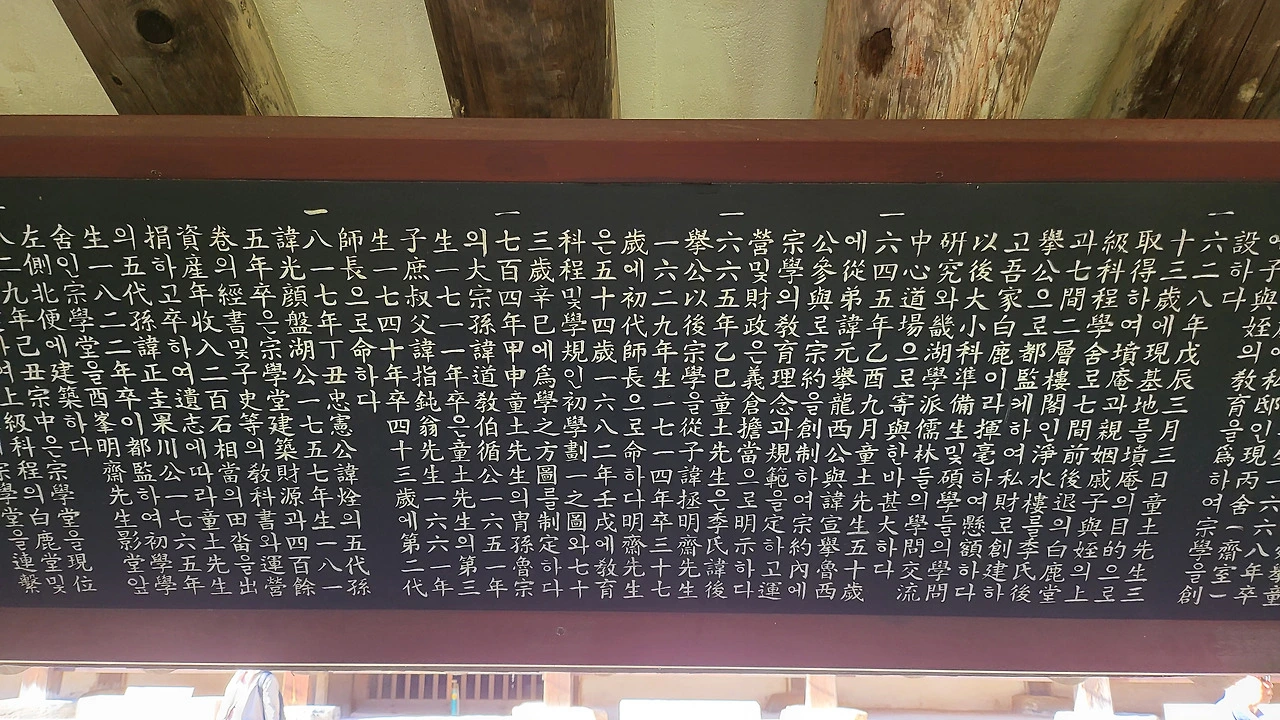 私邸인現丙舍(齋室)
子與姪의敎育을爲하여宗學을創
設하다
一六二八年戊辰三月三日童土先生三
十三歲에現基地를墳庵의目的으로
取得하여墳庵과親姻戚子與姪의上
級科程學舍로七間前後退의白鹿堂
과七間二層樓閣인淨水樓를李氏後
擧公으로都監케하여私財로創建하
고吾家白鹿이라揮毫하여懸額하다
以後大小科準備生및碩學들의學問
硏究와畿湖學派儒林들의學問交流
中心道場으로寄與한바甚大하다
一六四五年乙酉九月童土先生五十歲
에從弟諱元擧龍西公與諱宣擧魯西
公參與로宗約을創制하여宗約內에
宗學의敎育理念과規範을定하고運
營및財政은義倉擔當으로明示하다
一六六五年乙巳童土先生은李氏諱後
擧公以後宗學을從子諱拯明齋先生
一六二九年生一七一四年卒三十七
歲에初代師長으로命하다明齋先生
은五十四歲一六八二年壬戌에敎育
科程및學規인初學劃一之圖와七十
三歲辛巳에爲學之方圖를制定하다
一七百四年甲申童土先生의冑孫魯宗
의大宗孫諱道敎伯循公一六五一年
生一七一一年卒은童土先生의第三
子庶叔父諱指鈍翁先生一六六一年
生一七四十年卒四十三歲에第二代
師長으로命하다
一八一七年丁丑忠憲公諱烇의五代孫
諱光顔盤湖公一七五七年生一八一
五年卒은宗學堂建築財源과四百餘
卷의經書및子史等의敎科書와運營
資産年收入二百石相當의田畓을出
捐하고卒하여遺志에따라童土先生
의五代孫諱正圭果川公一七六五年
生一八二二年卒이都監하여初學學
舍인宗學堂을酉峯明齋先生影堂앞
左側北便에建築하다
一八二九年己丑宗中은宗學堂을現位
上級科程의白鹿堂및
宗學堂을連繫